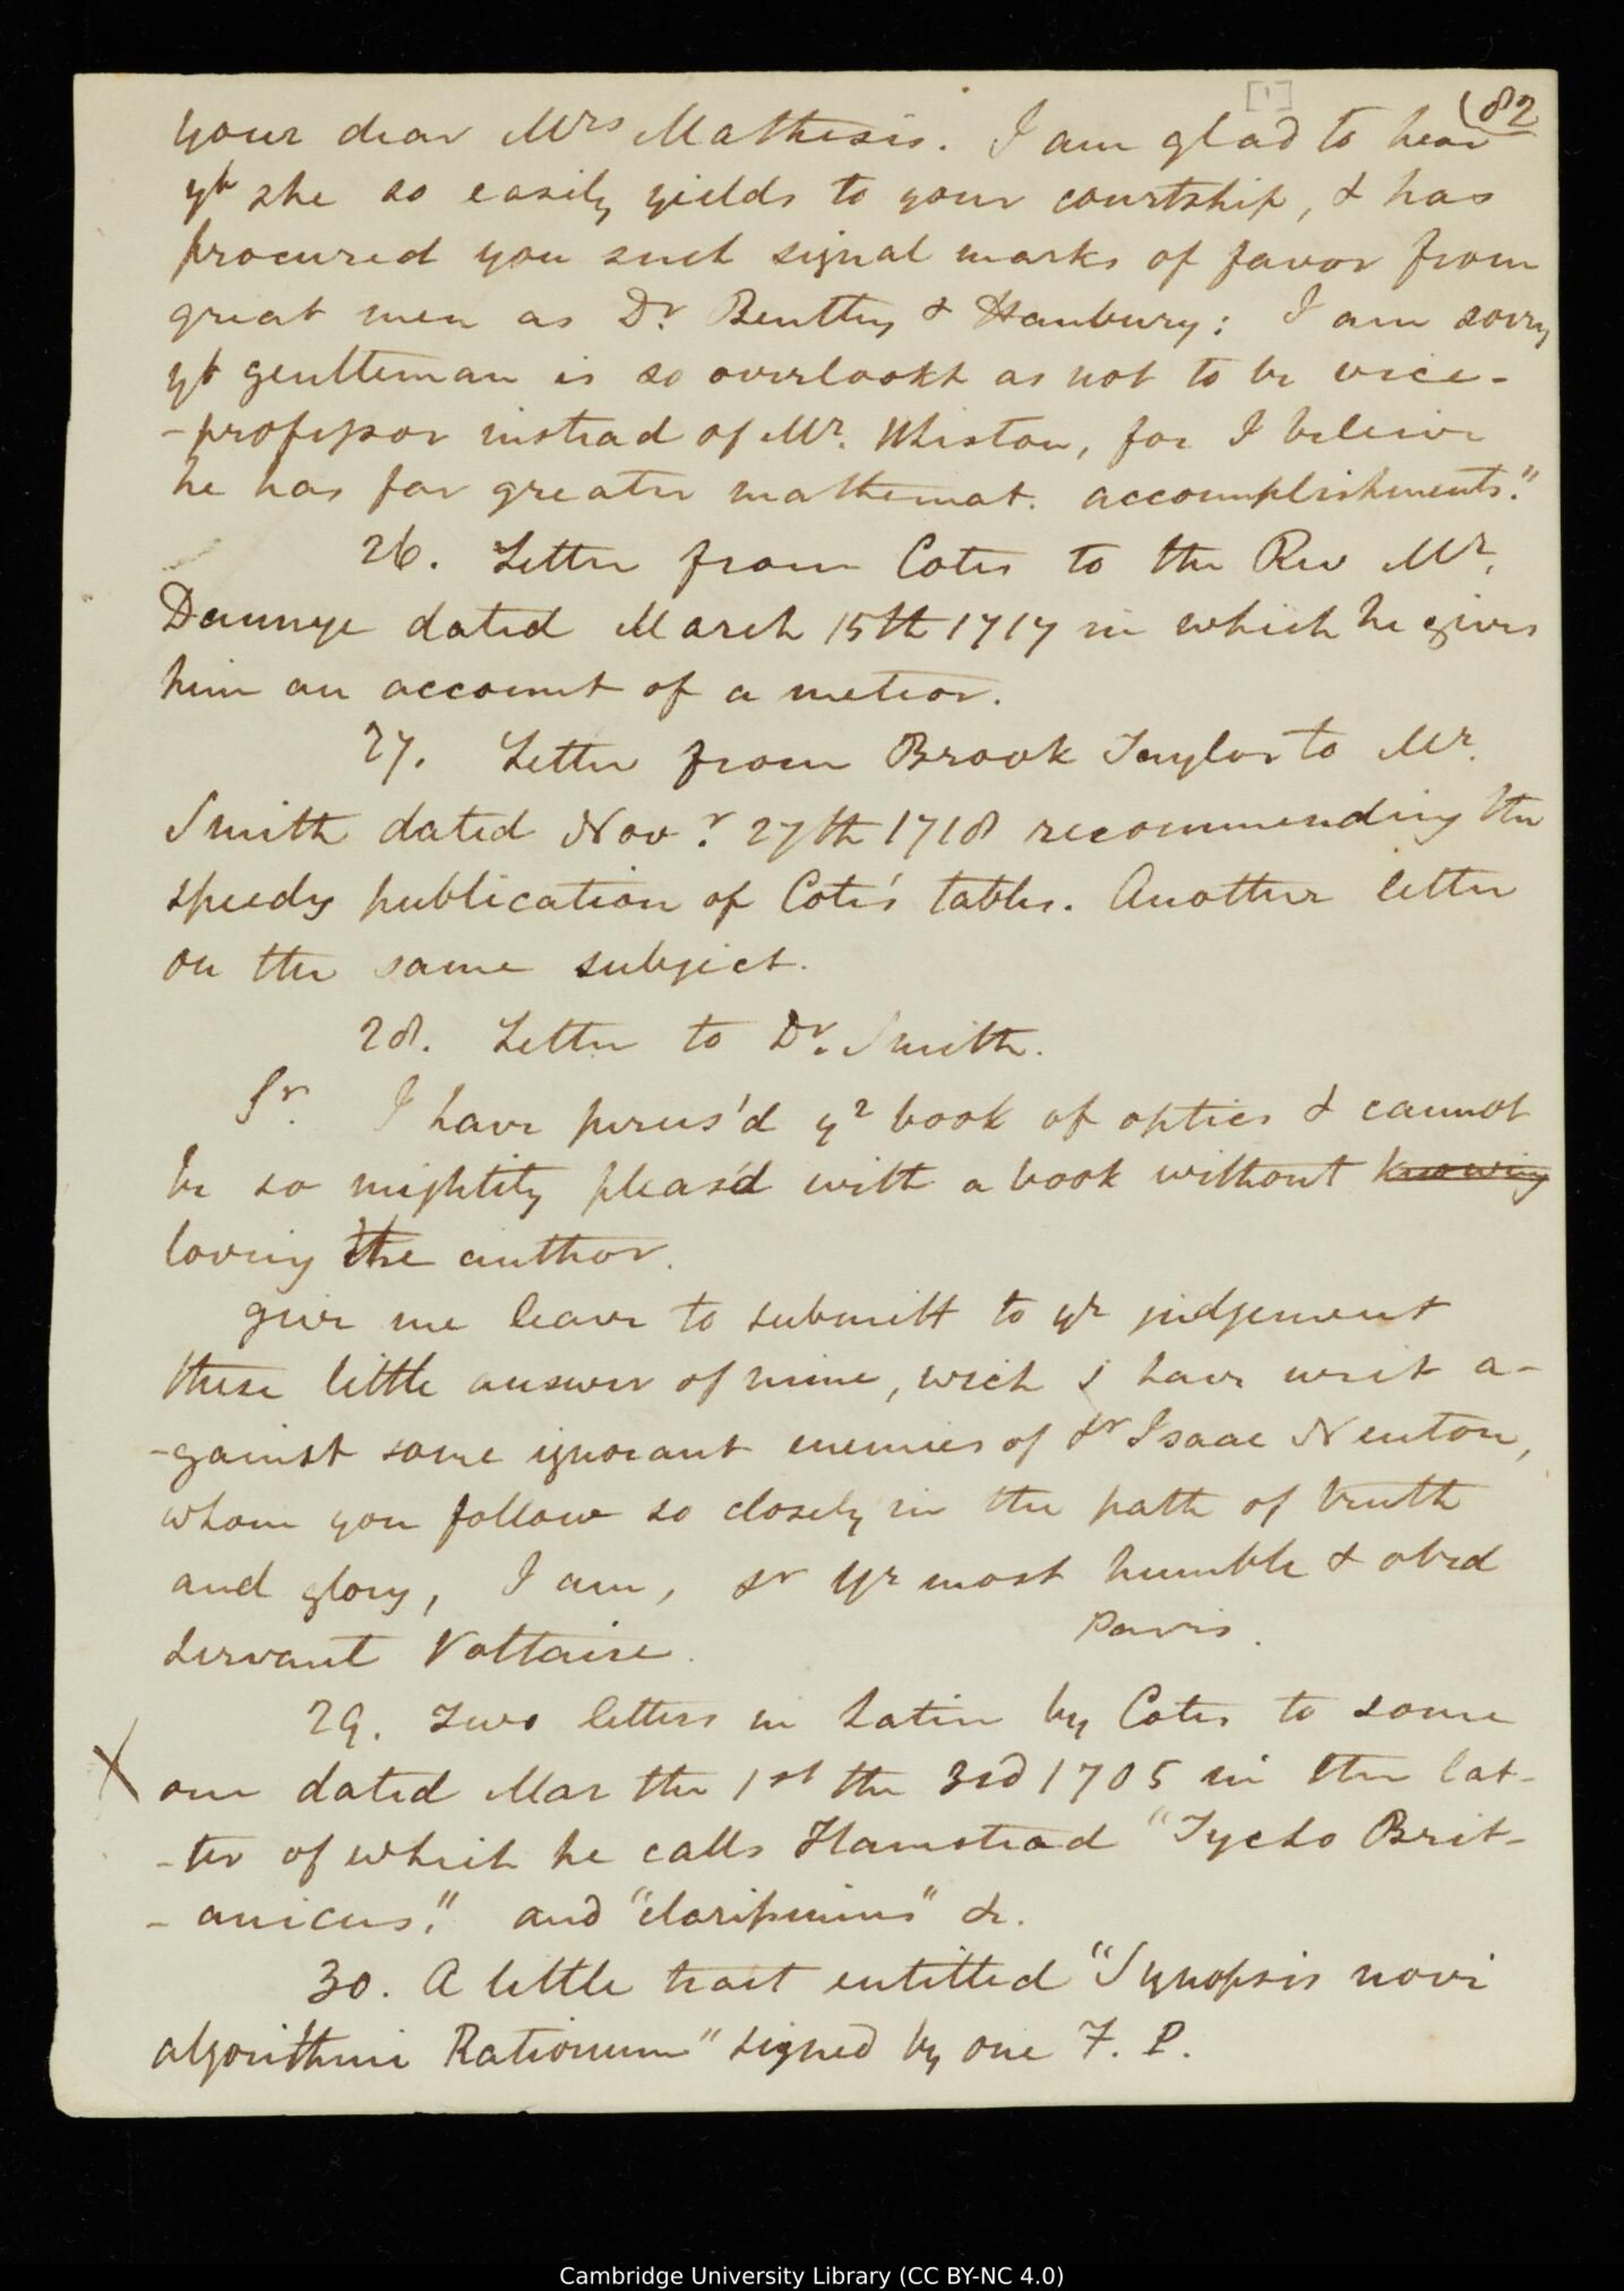 [1]
(82
your dear Mrs Mathesis. I am glad to hear
yt she so easily yields to your courtship, & has
procured you such signal marks of favor from
great men as Dr. Bentley & Hanbury: I am sorry
yt gentleman is so overlookt as not to be vice-
-professor instead of Mr. Whiston, for I believe
he has far greater mathemat. accomplishments."
26. Letter from Cotes to the Rev Mr.
Dannye dated March 15th 1717 in which he gives
him an account of a meteor.
27. Letter from Brook Taylor to Mr.
Smith dated Novr. 27th 1718 recommending the
speedy publication of Cote's tables. Another letter
on the same subject.
28. Letter to Dr. Smith.
Sr. I have perus'd yr book of optics & cannot
be so mightily pleas'd with a book without knowing
loving the author.
give me leave to submitt to yr judgement
these little answer of mine, wich j have writ a-
-gainst some ignorant enemies of Sr Isaac Newton,
whom you follow so closely in the path of truth
and glory, I am, Sr yr most humble & obed
servant Voltaire. Paris.
29. Two letters in Latin by Cotes to some
one dated Mar the 1st the 3rd 1705 in the lat-
-ter of which he calls Flamstead "Tycho Brit-
-anicus," and "clarissimus" &c.
30. A little tract entitled "Synopsis novi
algorithmi Rationum" signed by one F. P.
X
Cambridge University Library (CC BY-NC 4.0)